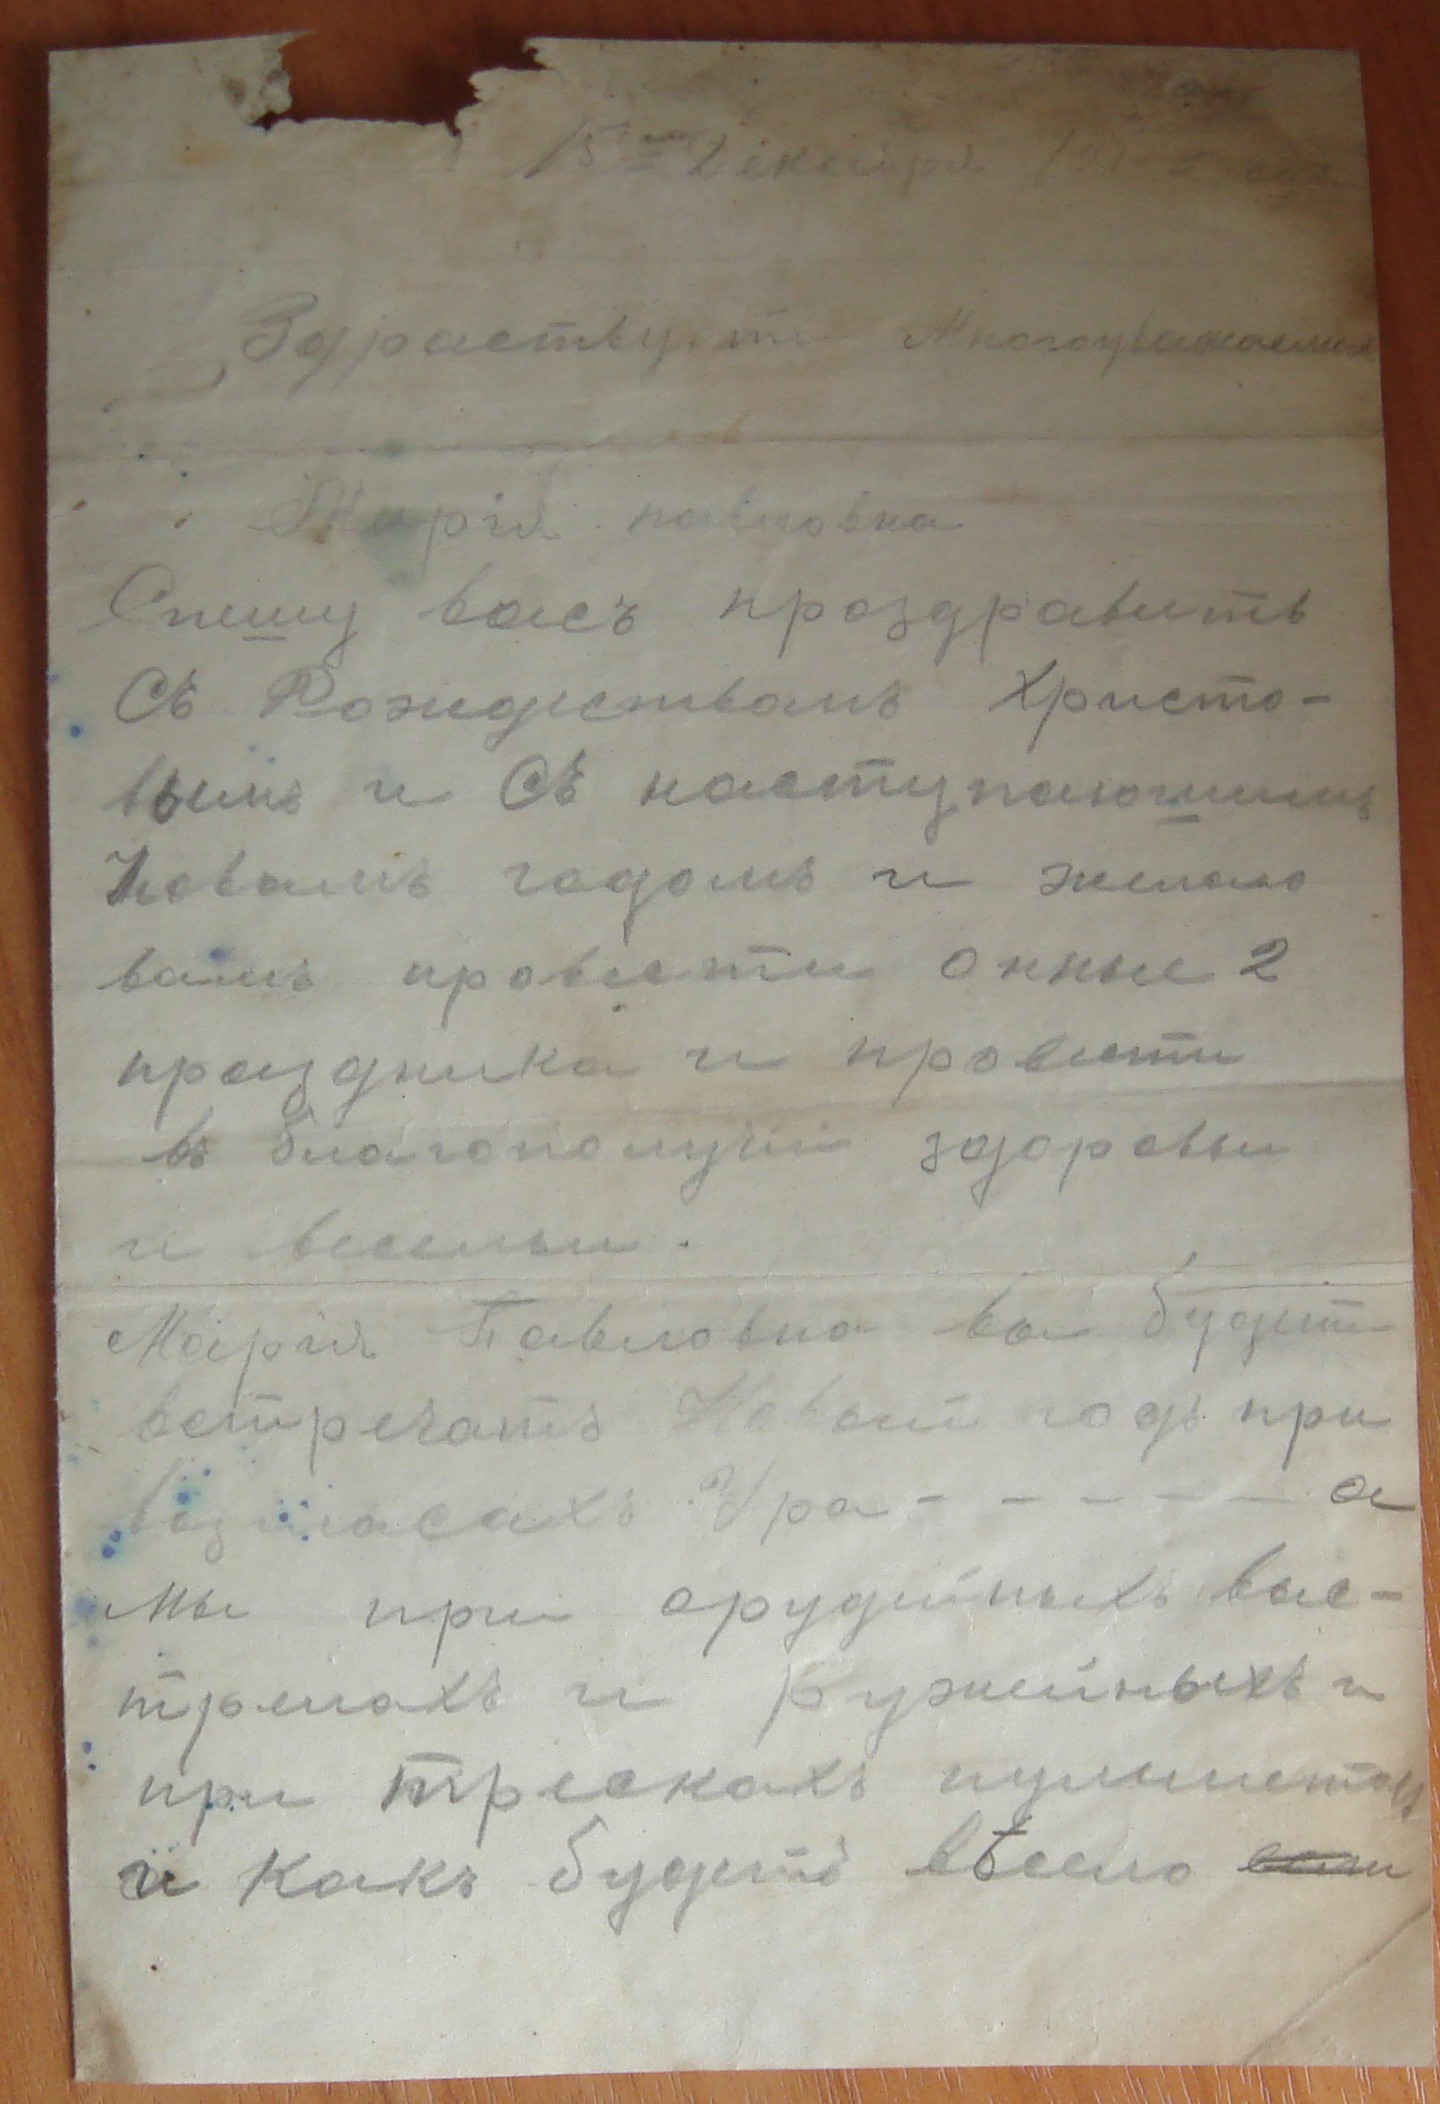 15го Декабря
Здраствуйти Многоуважаемая
Марiя павловна
Спешу васъ проздравить
Съ Рождествамъ Христо-
вымъ и Съ наступающимъ
Новамъ годомъ и желаю
вамъ провести онные 2
праздника и провести
в благополучии здоровьи
и весельи.
Марiя Павловна вы будите
встречать Новый годъ при
возгласахъ Ура - - - - - а
мы при орудийныхъ выс-
трелахъ и ружейныхъ и
при трескахъ пулиметовъ
и какъ будитъ вѣсело